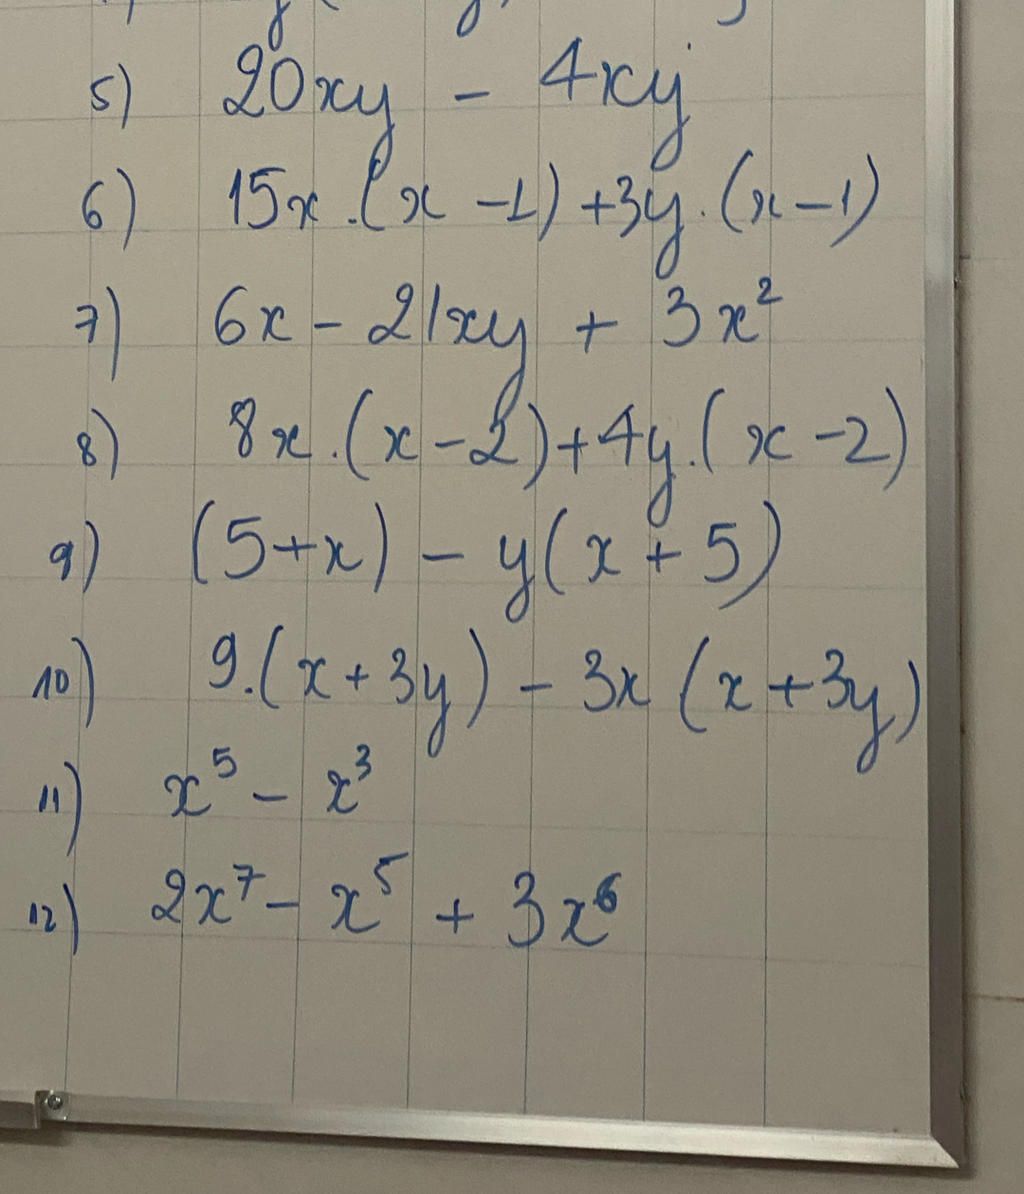 5) 20xy - 4xy
6) 15x.(x-1)+3y.(x-1)
7) 6x - 21xy + 3x²
8) 8x.(x-2)+4y.(x-2)
9) (5+x) - y(x+5)
10) 9.(x+3y) - 3x(x+3y)
11) x⁵ - x³
12) 2x⁷ - x⁵ + 3x⁶